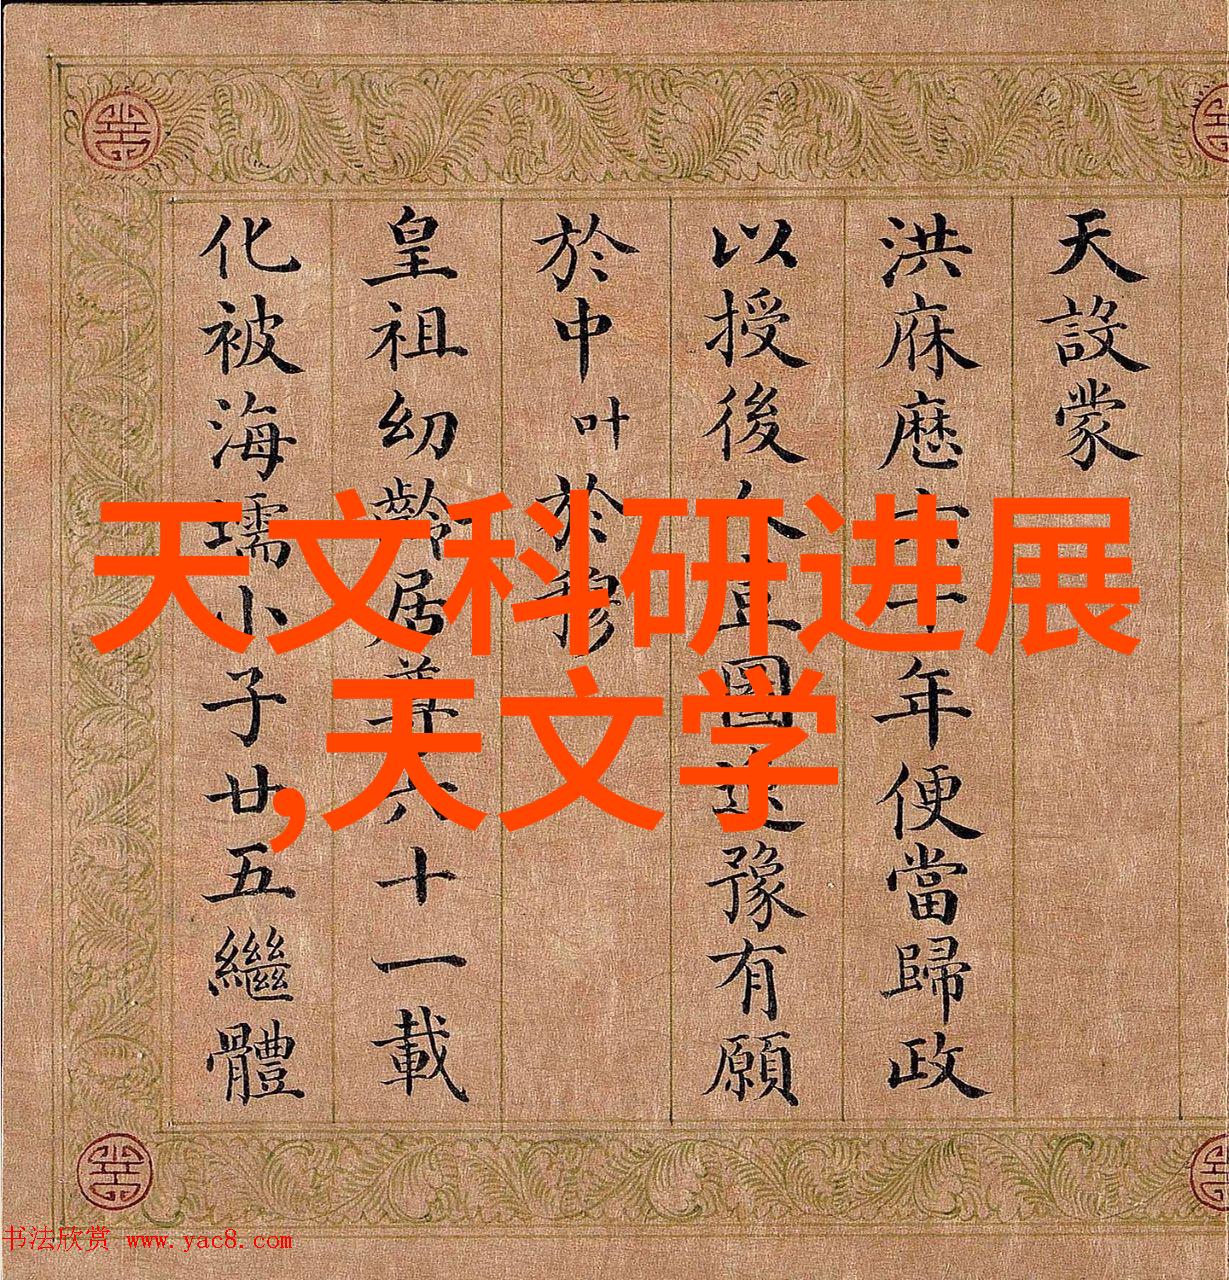 天設蒙
洪庥歷六十年便當歸政
以授後人圖豫有願
於中叶於穆
皇祖幼齡居尊六十一載
化被海壖小子廿五繼體
天文科研进展
,天文学
书法欣赏 www.yac8.com